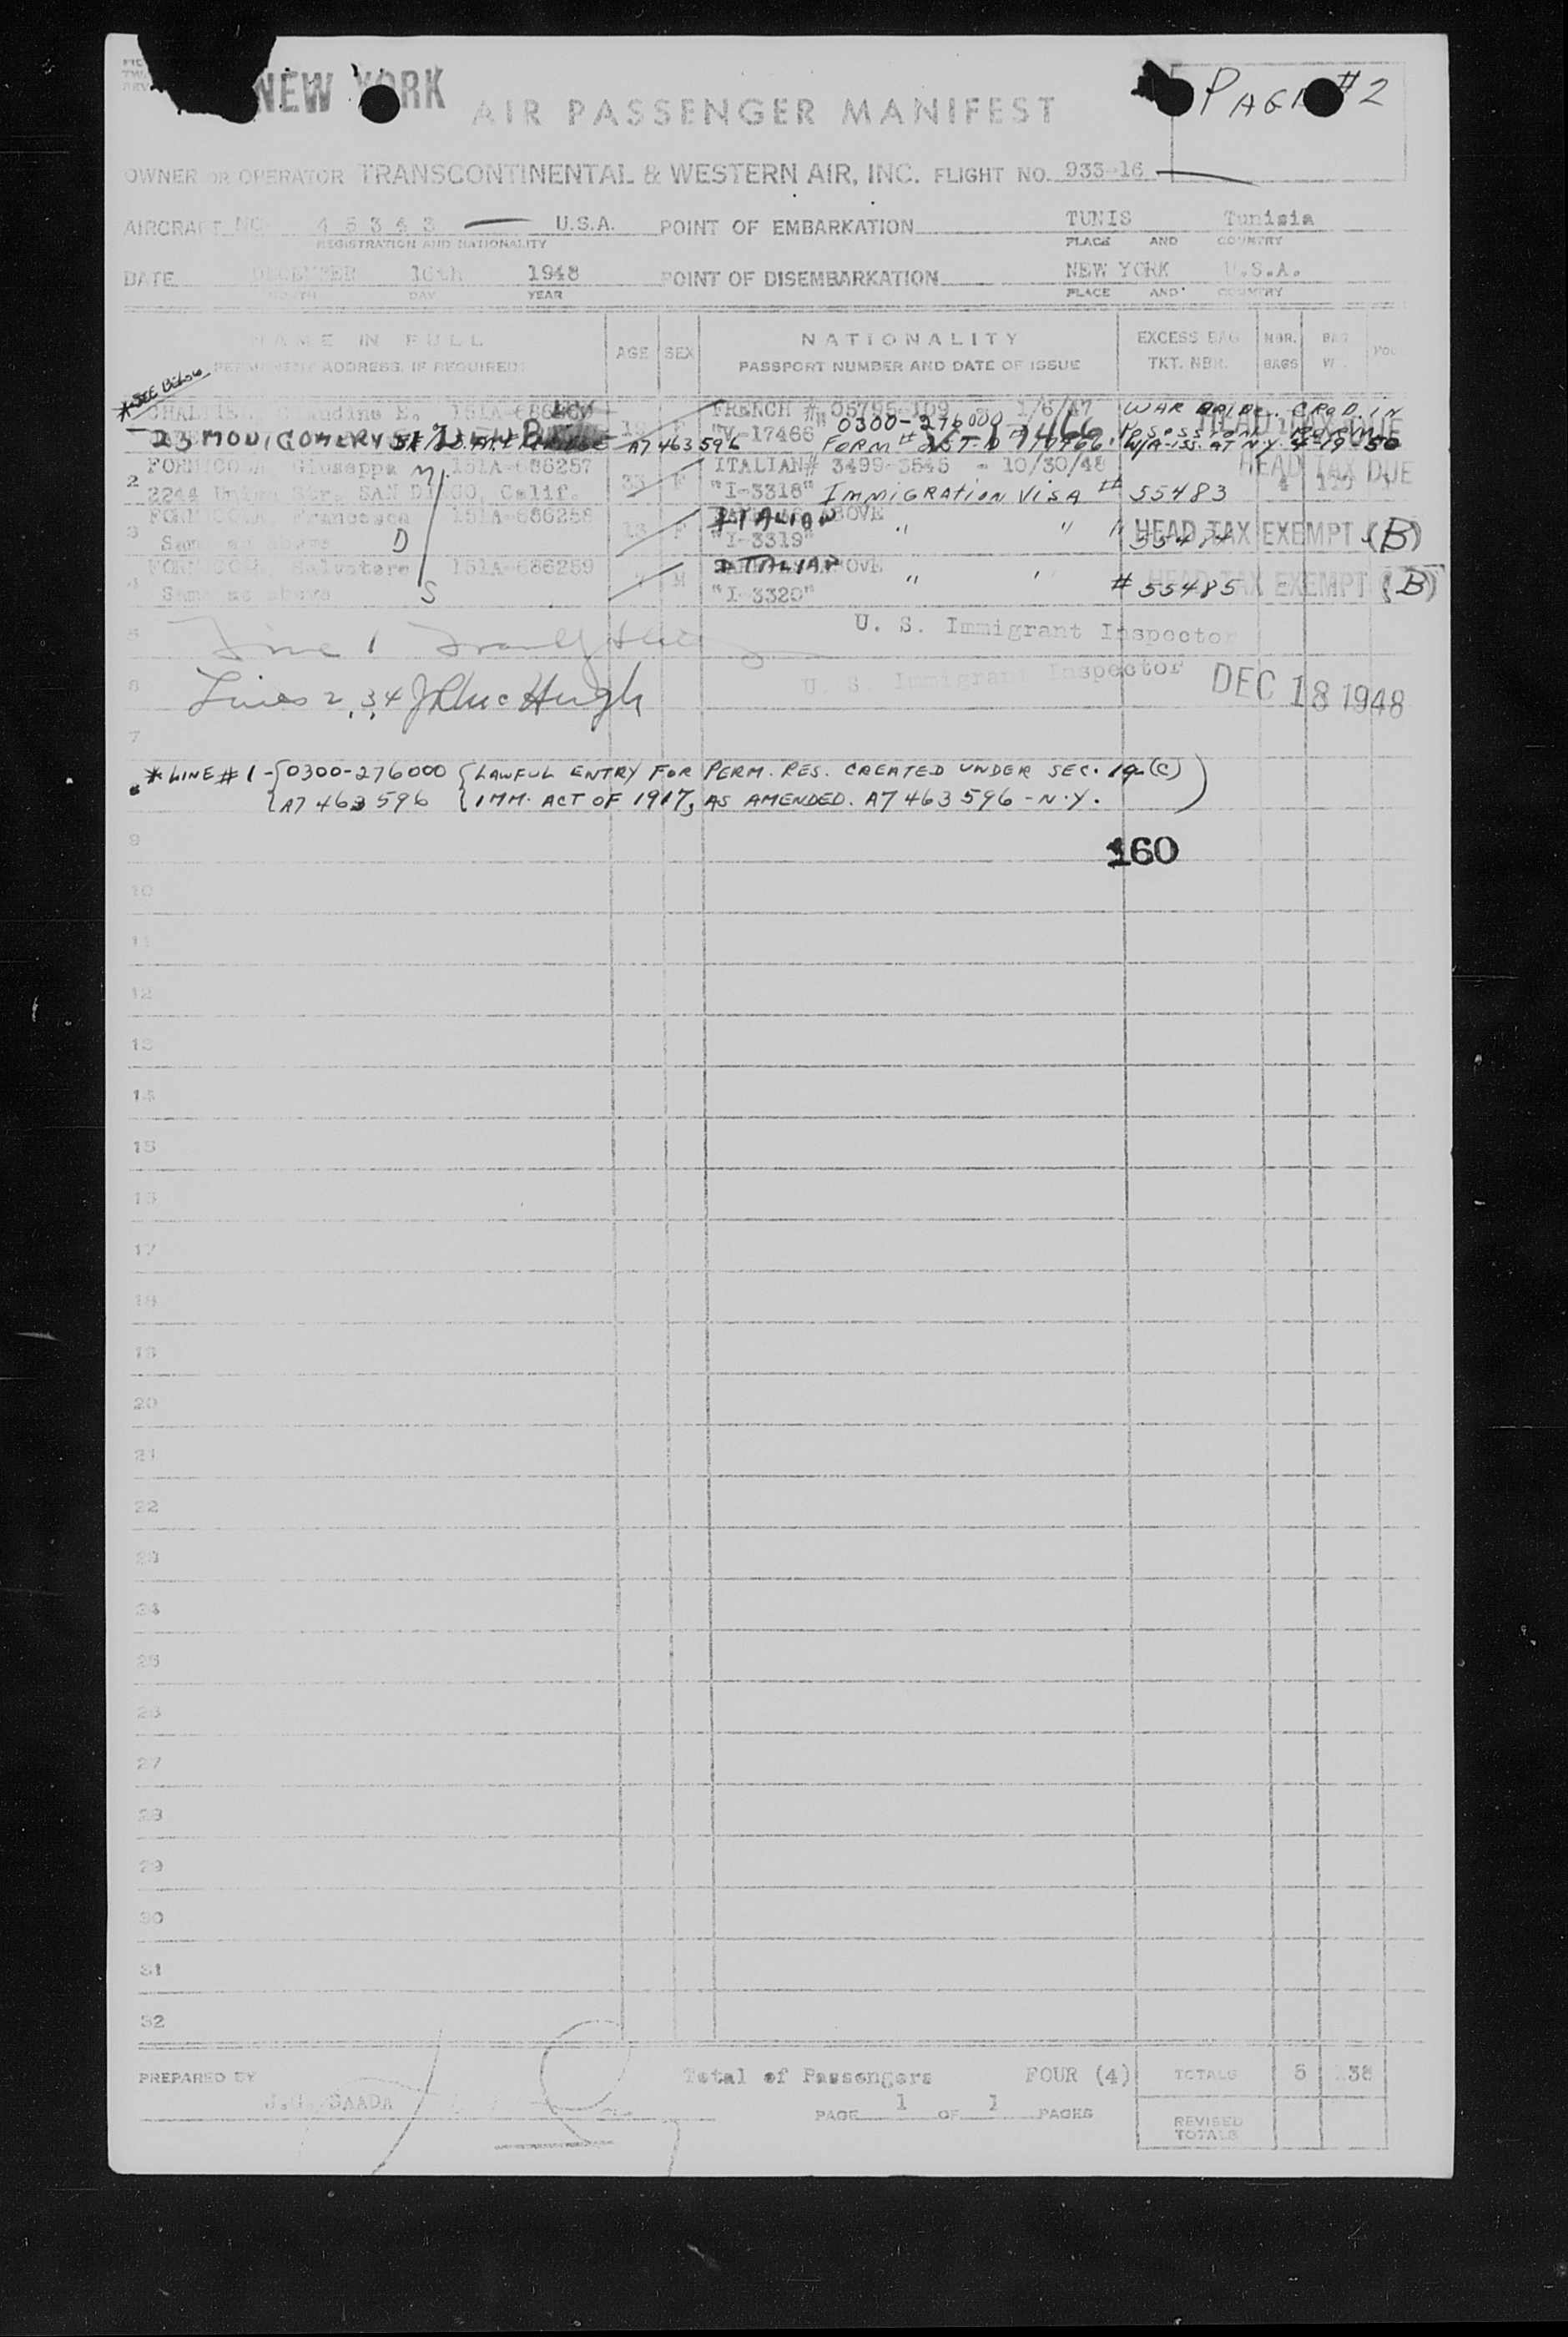 NEW YORK
PAGE #2
AIR PASSENGER MANIFEST
OWNER OR OPERATOR TRANSCONTINENTAL & WESTERN AIR, INC. FLIGHT NO. 933-16
AIRCRAFT NO. 45343 U.S.A. POINT OF EMBARKATION TUNIS Tunisia
REGISTRATION AND NATIONALITY PLACE AND COUNTRY
DATE DECEMBER 16th 1948 POINT OF DISEMBARKATION NEW YORK U.S.A.
MONTH DAY YEAR PLACE AND COUNTRY
NAME IN FULL AGE SEX NATIONALITY EXCESS BAG NBR. BAG
PERMANENT ADDRESS, IF REQUIRED PASSPORT NUMBER AND DATE OF ISSUE TKT. NBR. BAGS WT.
*SEE BELOW
Claudine E. FRENCH # 1/6/47 WAR BRIDE. CROD. IN
0300-276000
"V-17466"
A7 463 596 FORM # N.Y. 4-19-50
HEAD TAX DUE
2 FORMICOLA, Giuseppa M 151A-686257 33 F ITALIAN# 3499-3545 - 10/30/48 HEAD TAX DUE
2244 Union Str. SAN DIEGO, Calif. "I-3318" IMMIGRATION VISA # 55483
3 FORMICOLA, Francesca 151A-686258 13 F ITALIAN ABOVE
Same as above D "I-3319" " " " 55484 HEAD TAX EXEMPT (B)
4 FORMICOLA, Salvatore 151A-686259 7 M ITALIAN ABOVE
Same as above S "I-3320" " " # 55485 HEAD TAX EXEMPT (B)
5 Line 1 U. S. Immigrant Inspector
6 Lines 2, 3, 4 U. S. Immigrant Inspector DEC 18 1948
7
* LINE # 1 - 0300-276000 LAWFUL ENTRY FOR PERM. RES. CREATED UNDER SEC. 19(C)
A7 463 596 IMM. ACT OF 1917, AS AMENDED. A7 463 596 - N.Y.
9 160
10
11
12
13
14
15
16
17
18
19
20
21
22
23
24
25
26
27
28
29
30
31
32
PREPARED BY Total of Passengers FOUR (4) TOTALS 5 138
SAADA PAGE 1 OF 1 PAGES
REVISED TOTALS